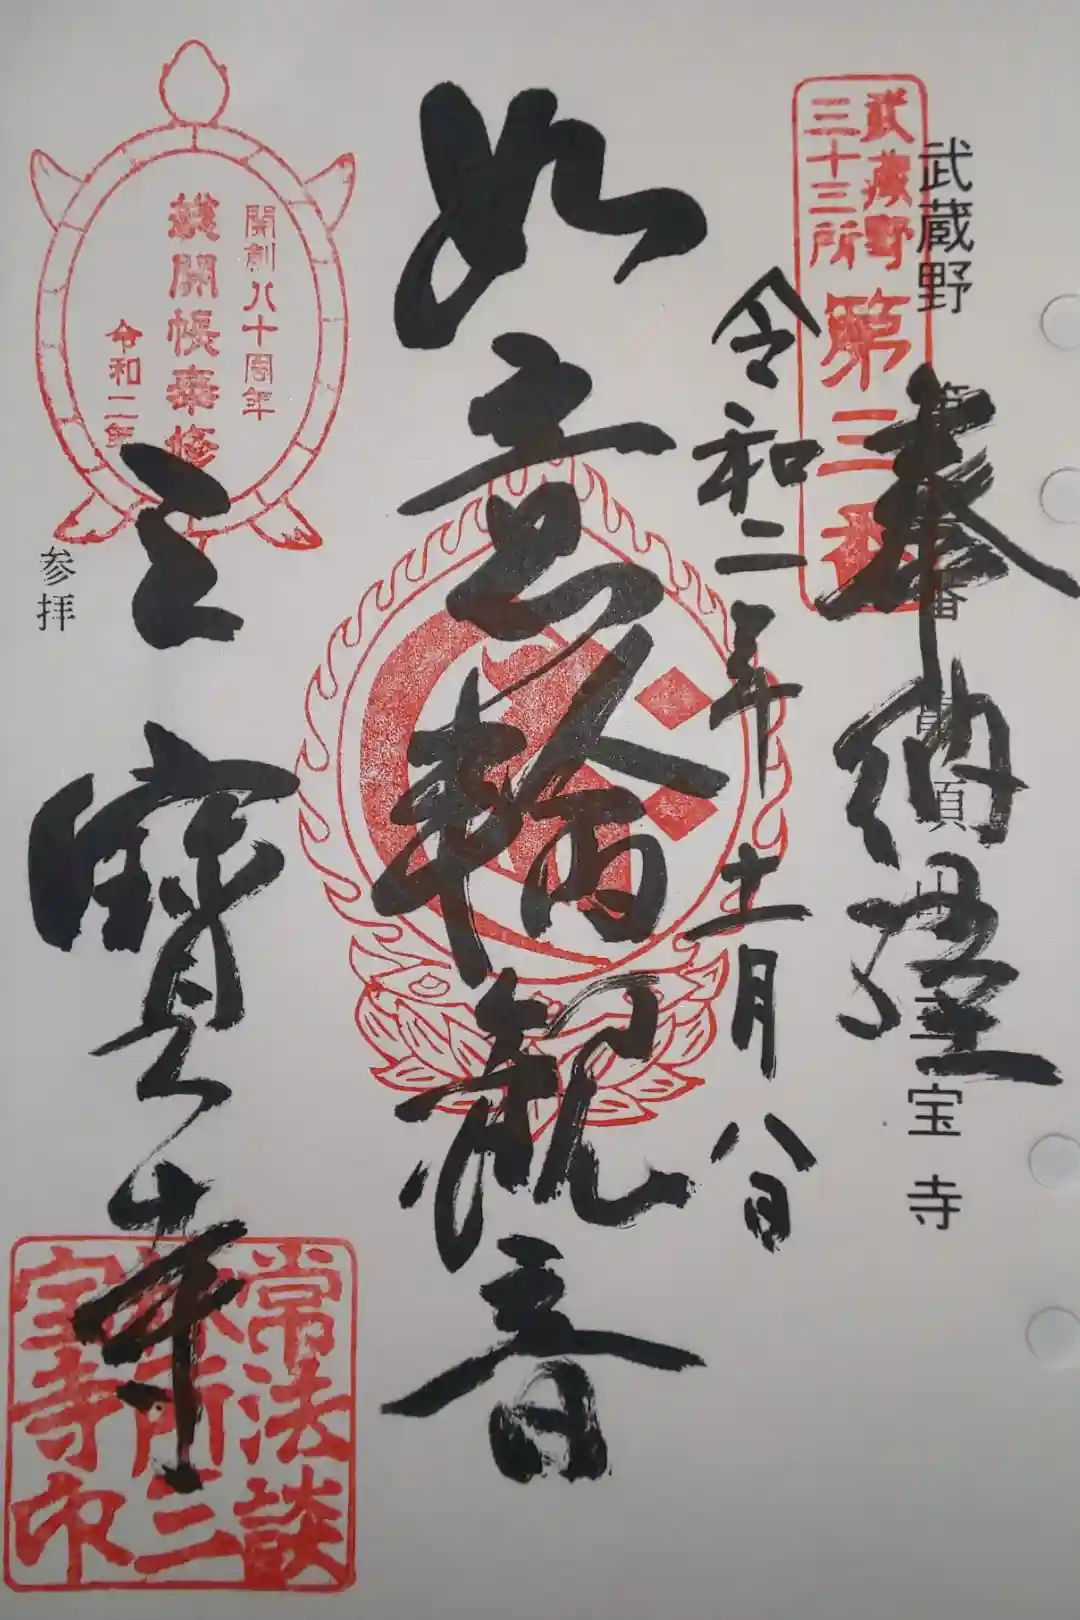 武蔵野
三十三所
第三番
武蔵野
宝寺
奉納経
令和二年
十一月
八日
如意輪観音
開創八十周年
開帳
令和二年
三寳寺
参拝
常法談
三
宝寺印